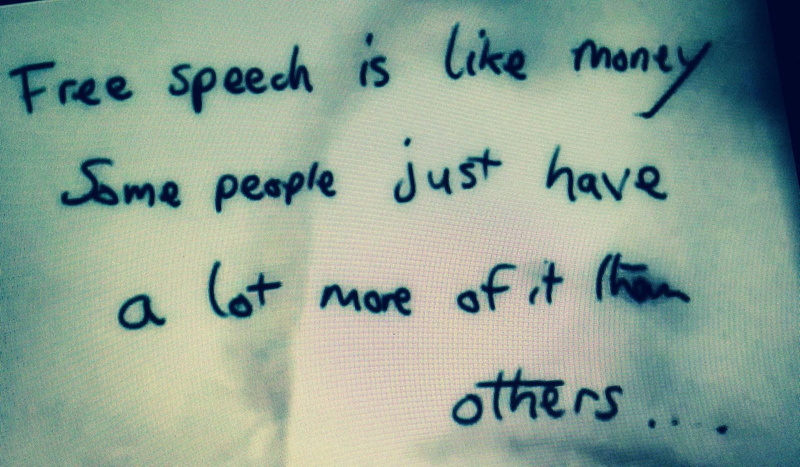 Free speech is like money
Some people just have
a lot more of it than
others....